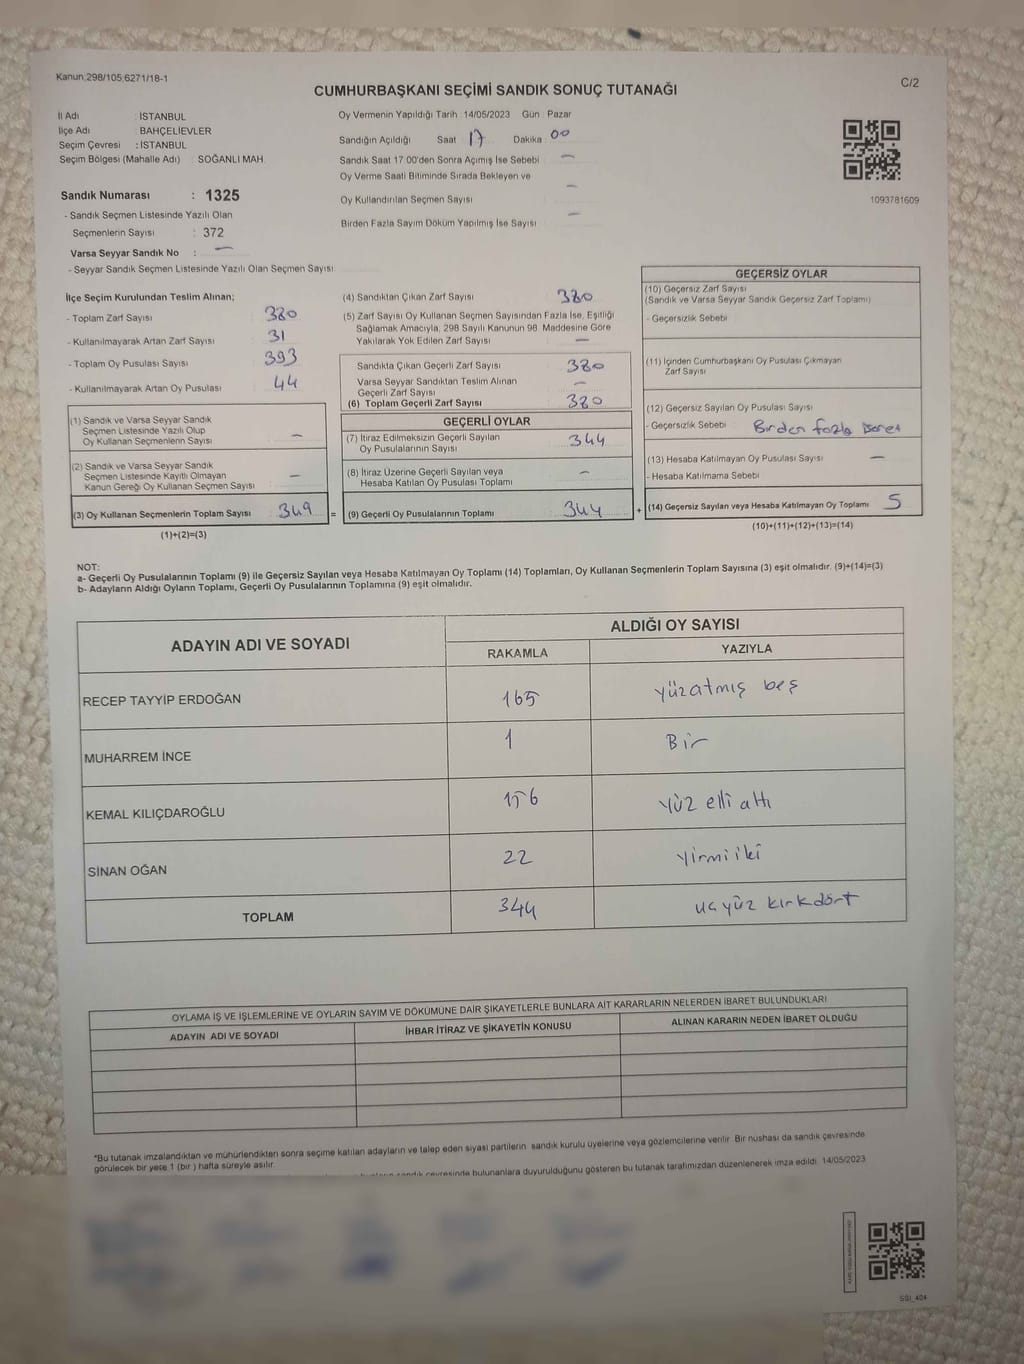 Kanun:298/105;6271/18-1
C/2
CUMHURBAŞKANI SEÇİMİ SANDIK SONUÇ TUTANAĞI
İl Adı : İSTANBUL
İlçe Adı : BAHÇELİEVLER
Seçim Çevresi : İSTANBUL
Seçim Bölgesi (Mahalle Adı) : SOĞANLI MAH.
Oy Vermenin Yapıldığı Tarih : 14/05/2023 Gün : Pazar
Sandığın Açıldığı Saat : 17 Dakika : 00
Sandık Saat 17:00'den Sonra Açımış İse Sebebi : —
Oy Verme Saati Bitiminde Sırada Bekleyen ve
Oy Kullandırılan Seçmen Sayısı —
Birden Fazla Sayım Döküm Yapılmış İse Sayısı —
1093781609
Sandık Numarası : 1325
- Sandık Seçmen Listesinde Yazılı Olan
Seçmenlerin Sayısı : 372
Varsa Seyyar Sandık No : —
- Seyyar Sandık Seçmen Listesinde Yazılı Olan Seçmen Sayısı
İlçe Seçim Kurulundan Teslim Alınan;
- Toplam Zarf Sayısı 380
- Kullanılmayarak Artan Zarf Sayısı 31
- Toplam Oy Pusulası Sayısı 393
- Kullanılmayarak Artan Oy Pusulası 44
(1) Sandık ve Varsa Seyyar Sandık
Seçmen Listesinde Yazılı Olup
Oy Kullanan Seçmenlerın Sayısı —
(2) Sandık ve Varsa Seyyar Sandık
Seçmen Listesinde Kayıtlı Olmayan
Kanun Gereği Oy Kullanan Seçmen Sayısı —
(3) Oy Kullanan Seçmenlerin Toplam Sayısı 349 =
(1)+(2)=(3)
(4) Sandıktan Çıkan Zarf Sayısı 380
(5) Zarf Sayısı Oy Kullanan Seçmen Sayısından Fazla İse, Eşitliği
Sağlamak Amacıyla; 298 Sayılı Kanunun 98. Maddesine Göre
Yakılarak Yok Edilen Zarf Sayısı —
Sandıkta Çıkan Geçerli Zarf Sayısı 380
Varsa Seyyar Sandıktan Teslim Alınan
Geçerli Zarf Sayısı —
(6) Toplam Geçerli Zarf Sayısı 380
GEÇERLİ OYLAR
(7) İtiraz Edilmeksizin Geçerli Sayılan
Oy Pusulalarının Sayısı 344
(8) İtiraz Üzerine Geçerli Sayılan veya
Hesaba Katılan Oy Pusulası Toplamı —
(9) Geçerli Oy Pusulalarının Toplamı 344 +
GEÇERSİZ OYLAR
(10) Geçersiz Zarf Sayısı
(Sandık ve Varsa Seyyar Sandık Geçersiz Zarf Toplamı)
- Geçersizlik Sebebi
(11) İçinden Cumhurbaşkanı Oy Pusulası Çıkmayan
Zarf Sayısı
(12) Geçersiz Sayılan Oy Pusulası Sayısı
- Geçersizlik Sebebi Birden fazla
(13) Hesaba Katılmayan Oy Pusulası Sayısı —
- Hesaba Katılmama Sebebi
(14) Geçersiz Sayılan veya Hesaba Katılmayan Oy Toplamı 5
(10)+(11)+(12)+(13)=(14)
NOT:
a- Geçerli Oy Pusulalarının Toplamı (9) ile Geçersiz Sayılan veya Hesaba Katılmayan Oy Toplamı (14) Toplamları, Oy Kullanan Seçmenlerin Toplam Sayısına (3) eşit olmalıdır. (9)+(14)=(3)
b- Adayların Aldığı Oyların Toplamı, Geçerli Oy Pusulalarının Toplamına (9) eşit olmalıdır.
ADAYIN ADI VE SOYADI
ALDIĞI OY SAYISI
RAKAMLA YAZIYLA
RECEP TAYYİP ERDOĞAN 165 yüzatmış beş
MUHARREM İNCE 1 Bir
KEMAL KILIÇDAROĞLU 156 yüz elli altı
SİNAN OĞAN 22 yirmi iki
TOPLAM 344 üç yüz kırkdört
OYLAMA İŞ VE İŞLEMLERİNE VE OYLARIN SAYIM VE DÖKÜMÜNE DAİR ŞİKAYETLERLE BUNLARA AİT KARARLARIN NELERDEN İBARET BULUNDUKLARI
ADAYIN ADI VE SOYADI İHBAR İTİRAZ VE ŞİKAYETİN KONUSU ALINAN KARARIN NEDEN İBARET OLDUĞU
*Bu tutanak imzalandıktan ve mühürlendikten sonra seçime katılan adayların ve talep eden siyasi partilerin sandık kurulu üyelerine veya gözlemcilerine verilir. Bir nüshası da sandık çevresinde
görülecek bir yere 1 (bir ) hafta süreyle asılır.
sandık çevresinde bulunanlara duyurulduğunu gösteren bu tutanak tarafımızdan düzenlenerek imza edildi. 14/05/2023
SGI_404